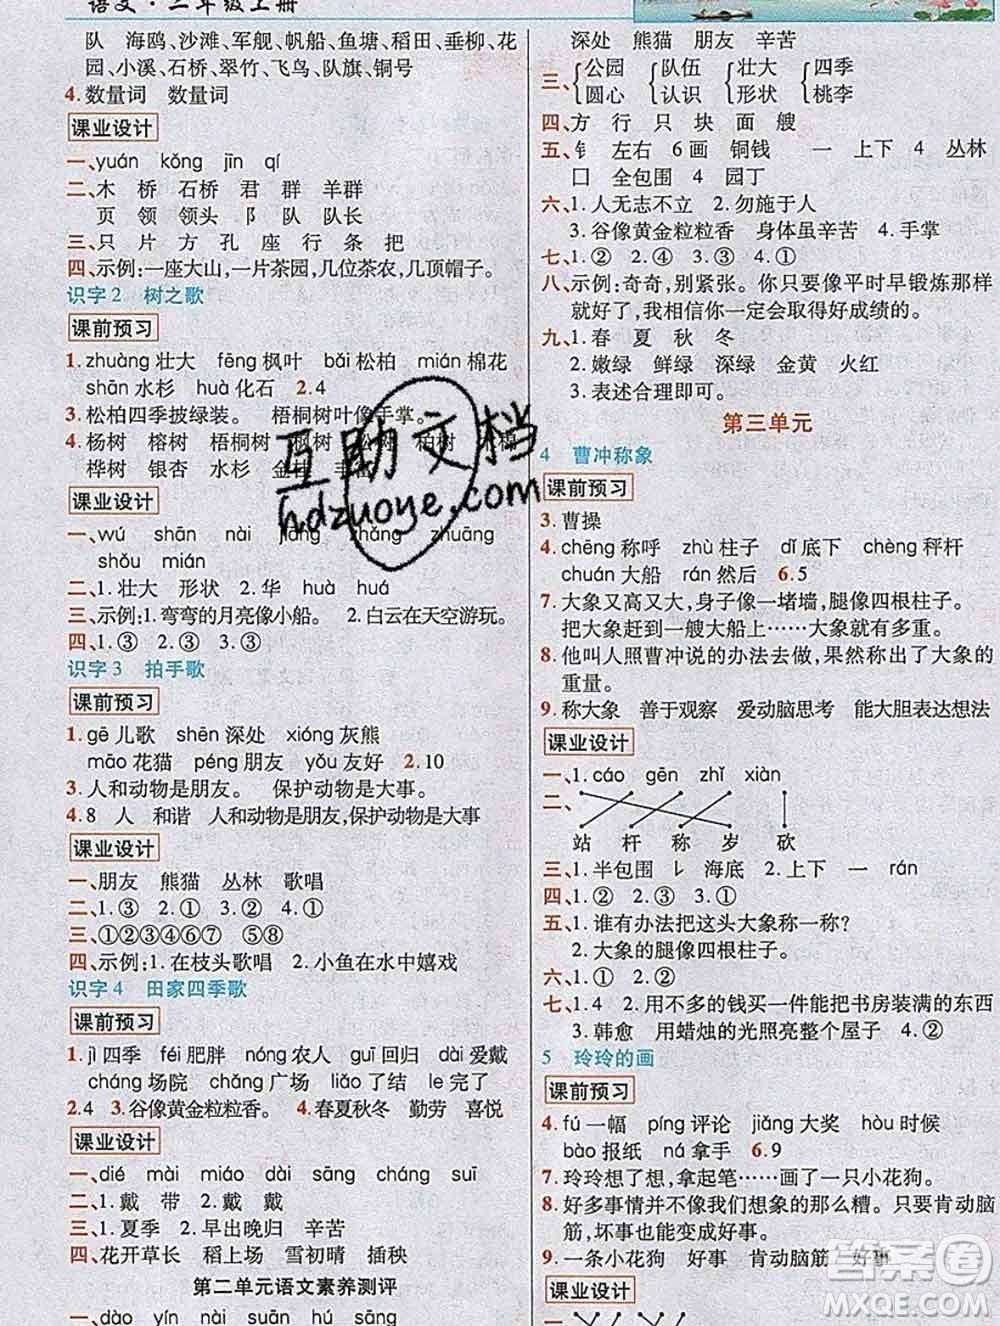 语文·二年级上册
队 海鸥、沙滩、军舰、帆船、鱼塘、稻田、垂柳、花
园、小溪、石桥、翠竹、飞鸟、队旗、铜号
4.数量词 数量词
课业设计
一、yuán kǒng jīn qí
二、木 桥 石桥 君 群 羊群
页 领 领头 阝 队 队长
三、只 片 方 孔 座 行 条 把
四、示例:一座大山,一片茶园,几位茶农,几顶帽子。
识字2 树之歌
课前预习
1.zhuàng壮大 fēng枫叶 bǎi松柏 mián棉花
shān水杉 huà化石 2.4
3.松柏四季披绿装。 梧桐树叶像手掌。
4.杨树 榕树 梧桐树 枫树 松树 柏树
桦树 银杏 水杉 金桂
课业设计
一、wú shān nài jiāng zhǎng zhuāng
shǒu mián
二、1.壮大 形状 2.华 huà huá
三、示例:1.弯弯的月亮像小船。 2.白云在天空游玩。
四、1.③ 2.③ 3.①
识字3 拍手歌
课前预习
1.gē儿歌 shēn深处 xióng灰熊
māo花猫 péng朋友 yǒu朋友 2.10
3.人和动物是朋友。 保护动物是大事。
4.8 人 和谐 人和动物是朋友,保护动物是大事
课业设计
一、朋友 熊猫 丛林 歌唱
二、1.③ 2.② 3.②
三、①②③④⑥⑦ ⑤⑧
四、示例:1.在枝头歌唱 2.小鱼在水中嬉戏
识字4 田家四季歌
课前预习
1.jì四季 féi肥胖 nóng农人 guī回归 dài爱戴
cháng场院 chǎng广场 liǎo了结 le完了
2.4 3.谷像黄金粒粒香。 4.春夏秋冬 勤劳 喜悦
课业设计
一、dié mài miáo dài sāng cháng suī
二、1.戴 带 2.戴 戴
三、1.夏季 2.早出晚归 辛苦
四、花开草长 稻上场 雪初晴 插秧
第二单元语文素养测评
一、dào yín nài suān hú shāng
深处 熊猫 朋友 辛苦
三、{公园 圆心 {队伍 认识 {壮大 形状 {四季 桃李
四、方 行 只 块 面 艘
五、钅 左右 6画 铜钱 一 上下 4 丛林
囗 全包围 4 园丁
六、1.人无志不立 2.勿施于人
3.谷像黄金粒粒香 身体虽辛苦 4.手掌
七、1.② 2.④ 3.① 4.③
八、示例:奇奇,别紧张。你只要像平时早锻炼那样
就好了,我相信你一定会取得好成绩的。
九、1.春 夏 秋 冬
2.嫩绿 鲜绿 深绿 金黄 火红
3.表述合理即可。
第三单元
4 曹冲称象
课前预习
3.曹操
4.chēng称呼 zhù柱子 dǐ底下 chèng秤杆
chuán大船 rán然后 6.5
7.大象又高又大,身子像一堵墙,腿像四根柱子。
把大象赶到一艘大船上……大象就有多重。
8.他叫人照曹冲说的办法去做,果然称出了大象的
重量。
9.称大象 善于观察 爱动脑思考 能大胆表达想法
课业设计
一、1.cáo gēn zhǐ xiàn
二、
站 杆 称 岁 砍
三、1.半包围 ㇙ 海底 2.上下 一 rán
四、1.① 2.③ 3.①
五、1.谁有办法把这头大象称一称?
2.大象的腿像四根柱子。
六、1.① 2.②
七、1.4 2.用不多的钱买一件能把书房装满的东西
3.韩愈 用蜡烛的光照亮整个屋子 4.②
5 玲玲的画
课前预习
4.fú一幅 píng评论 jiǎng大奖 hòu时候
bào报纸 ná拿手 6.9
7.玲玲想了想,拿起笔……画了一只小花狗。
8.好多事情并不像我们想象的那么糟。只要肯动脑
筋,坏事也能变成好事。
9.一条小花狗 好事 肯动脑筋 好事
课业设计
一、
互助文档
hdzuoye.com
答案圈
MXQE.COM